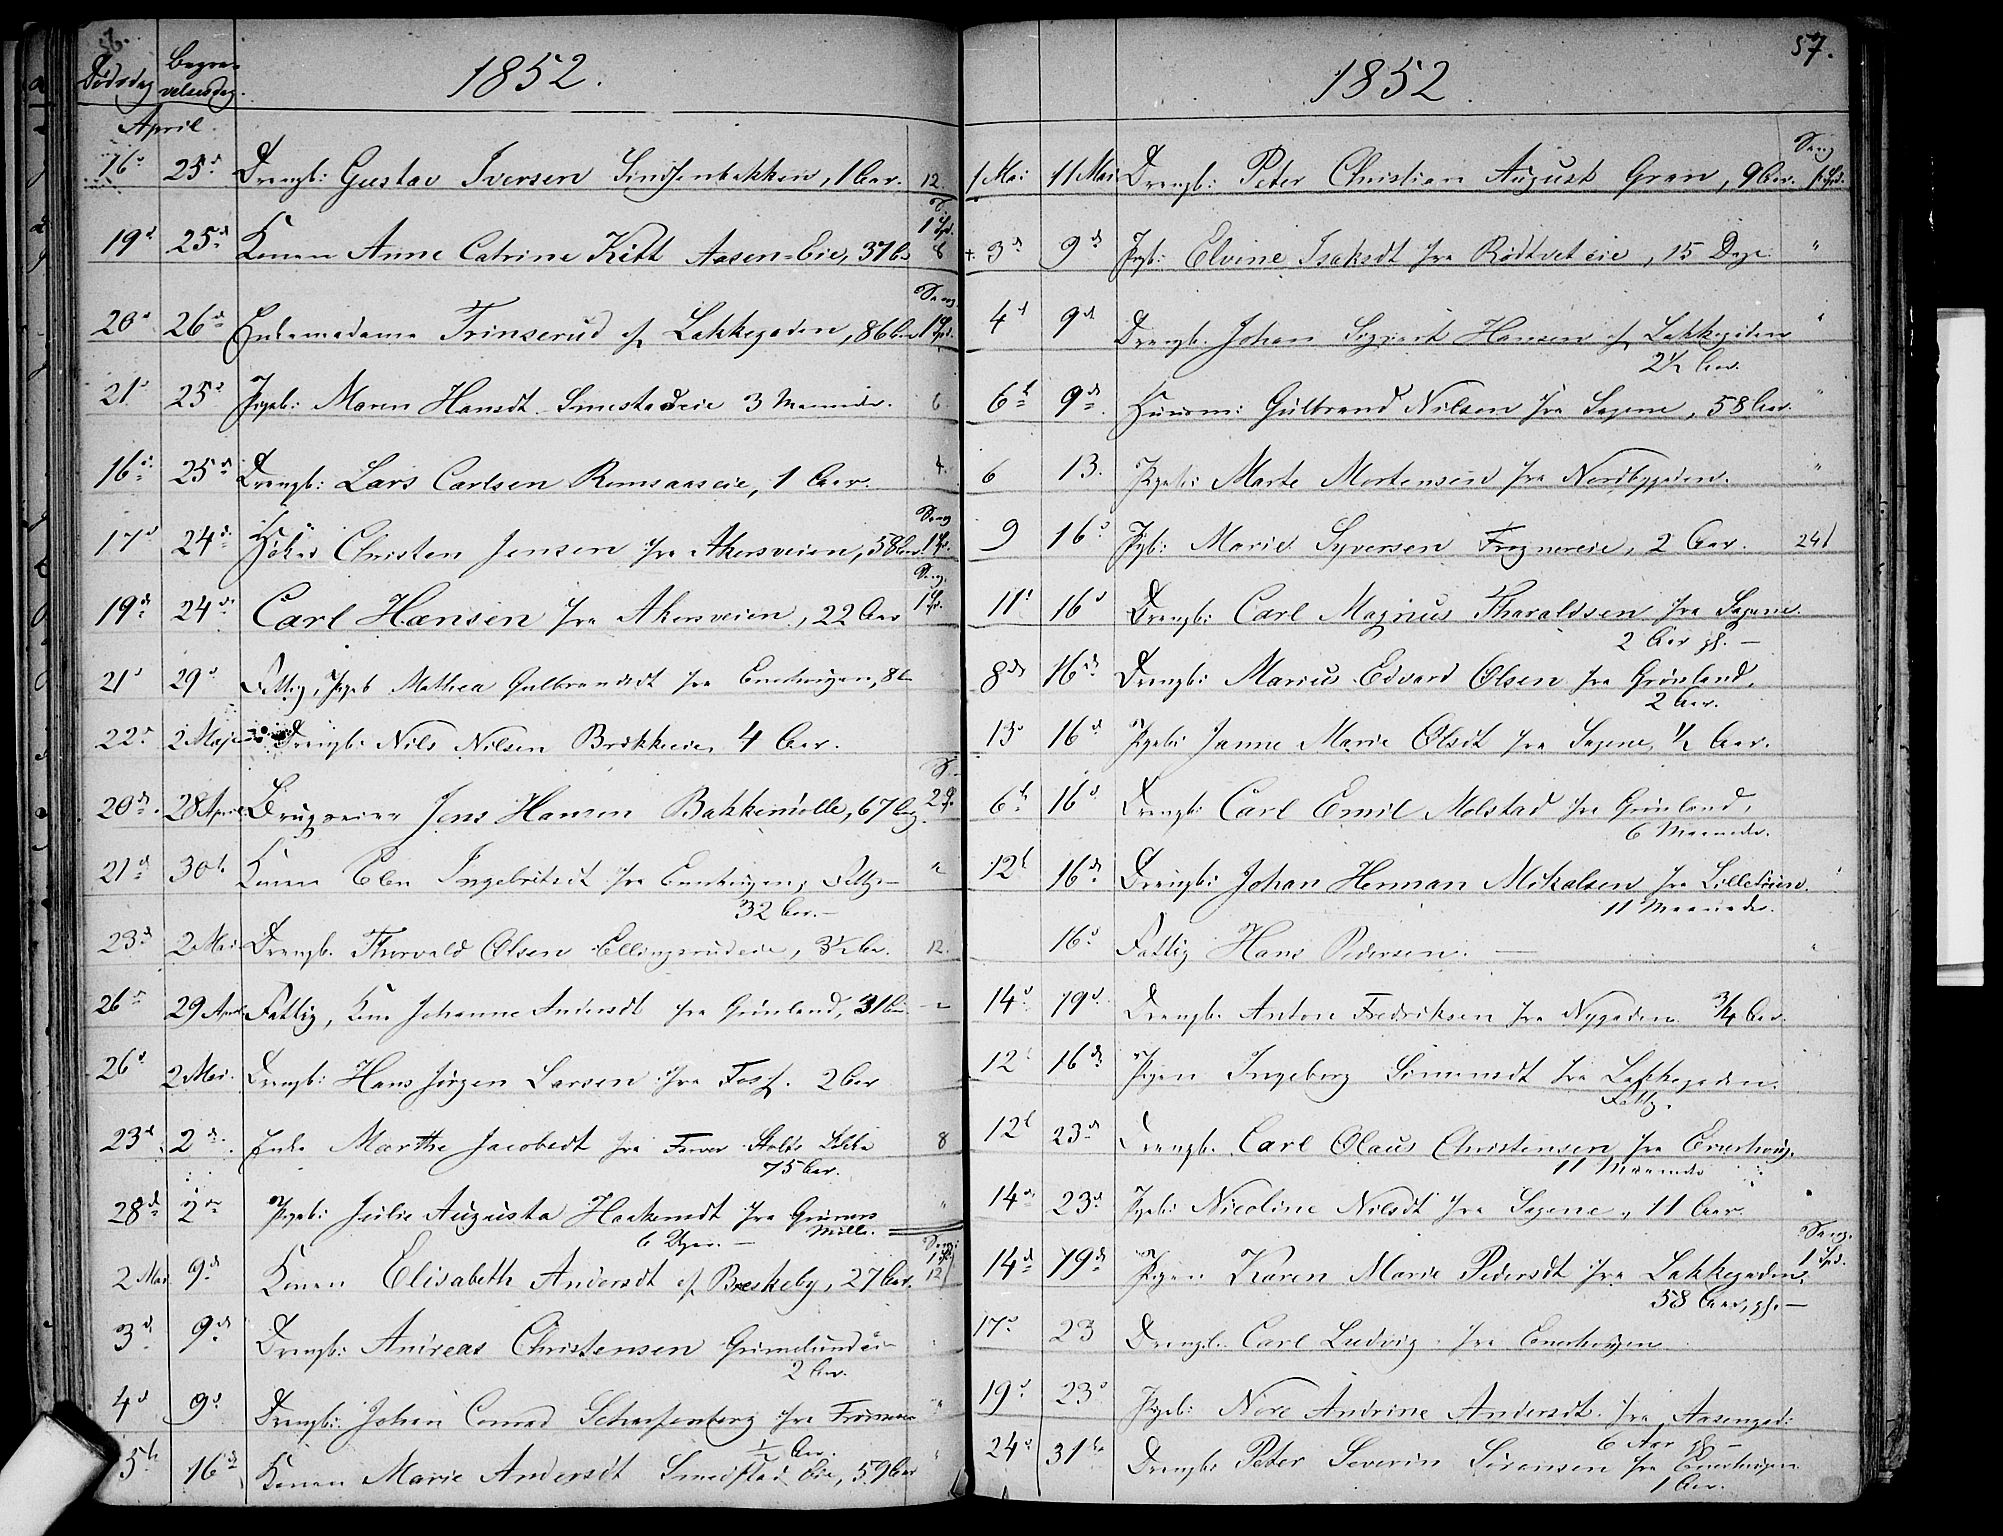 56.
Dødsdag Begravelsesdag.
1852.
April.
16d 25d Drengb: Gustav Iversen Sindsenbakken, 1 Aar. 12.
19d 25d Konen Anne Catrine Kitt Aasen=Eie, 37 1 Spd. 6
20d 26d Enkemadame Trinserud af Lakkegaden, 86 Aar Sang 1 Spd.
21d 25d Pigeb: Maren Hansdt. Smestadeie 3 Maaneder. 6
16d 25d Drengb: Lars Carlsen Romsaaseie, 1 Aar. 4.
17d 24d Høker Christen Jensen fra Akersveien, 58 Aar Sang
19d 24d Carl Hansen fra Akersveien, 22 Aar Sang.
21d 29d Fattig, Pigeb Mathea Gulbrandsdt fra Enerhaugen, 8
22d 2 Maj Drengb: Nils Nilsen Brekkeeie, 4 Aar.
20d 28 April Brugseier Jens Hansen Bakkemølle, 67 Aar
21d 30d Konen Elen Ingebritsdt fra Enerhaugen, Fattg
32 Aar.
23d 2 Mai Drengb. Thorvald Olsen Ellingsrudeie, 3½ Aar. 12.
26d 29 April Fattig, Kone Johanne Andersdt fra Grønland, 31 Aar
26d 2 Mai. Drengb: Hans Jørgen Larsen fra Foss. 2 Aar
23d 2d. Enke Marthe Jacobsdt fra Farver Stolts Løkke 8
75 Aar.
28d 2d Pigeb: Julie Augusta Haakensdt fra Grüners
6 Uger. Mølle.
2 Mai 9d Konen Elisabeth Andersdt af Breskeby, 27 Aar. Sang: 1 Spd 12
3d 9d Drengb: Andreas Christensen Grimelundeie
2 Aar.
4d 9d Drengb: Johan Conrad Scharfenberg fra
½ Aar.
5te 16d Konen Marie Andersdt Smedstad Eie, 59 Aar
57.
1852.
1 Mai 11 Mai Drengb: Peter Christian August Gran, 9 Aar. Sang 1 Spd.
+ 3d 9d Pigb: Elvine Isaksdt fra Rødtvet eie, 15 Dage. "
4d 9d Drengb. Johan Sigvart Hansen af Lakkegaden "
2½ Aar.
6t 9d. Huusm: Gulbrand Nilsen fra Sagene, 58 Aar. "
6 13. Pigeb: Marte Mortensen fra Nordbygaden. "
9 16d Pigb: Marie Syversen Frognereie, 2 Aar. 24
11t 16d Drengb: Carl Magnus Tharaldsen fra Sagene.
2 Aar gl. —
8d 16d Drengb: Marius Edvard Olsen fra Grønland,
2 Aar.
13d 16d Pigeb: Janne Marie Olsdt fra Sagene, ½ Aar.
6t 16d Drengb: Carl Emil Molstad fra Grønland,
6 Maaneder.
12t 16d Drengb: Johan Herman Mikalsen fra Lilletøien.
11 Maaneder.
16d Fattig Hans Pedersen. — "
14d 19d Drengb. Anton Fredriksen fra Nygaden ¾ Aar.
12t 16d Pigen Ingeborg Simensdt fra Lakkegaden.
Fattg.
12t 23d Drengb. Carl Olaus Christensen fra Enerhoug.
11 Maaneder
14d 23d Pigeb: Nicoline Nilsdt fra Sagene, 11 Aar.
14d 19d Pigen Karen Marie Pedersdt fra Lakkegaden, Sang. 1 Spd.
58 Aar, gl. —
17d 23 Drengb. Carl Ludvig fra Enerhougen
19d 23d Pigeb: Nore Andrine Andersdt. fra Aasengad:
6 Aar gl —
24d 31te Drengb: Peter Severin Sørensen fra Enerhougen
1 Aar.